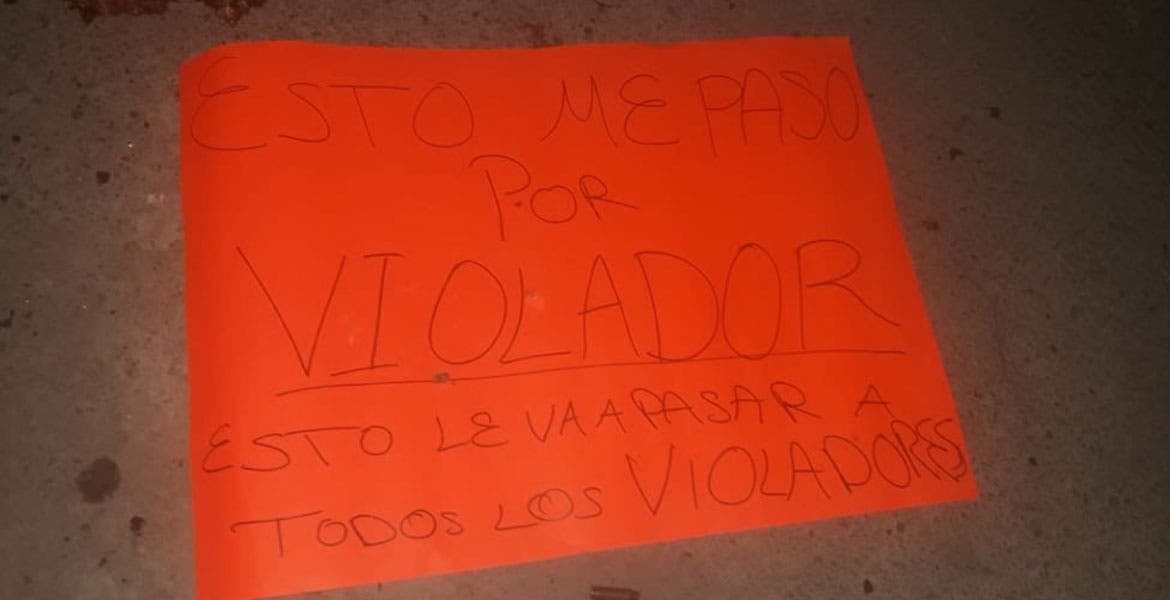 ESTO ME PASO
POR
VIOLADOR
ESTO LE VA A PASAR A
TODOS LOS VIOLADORES